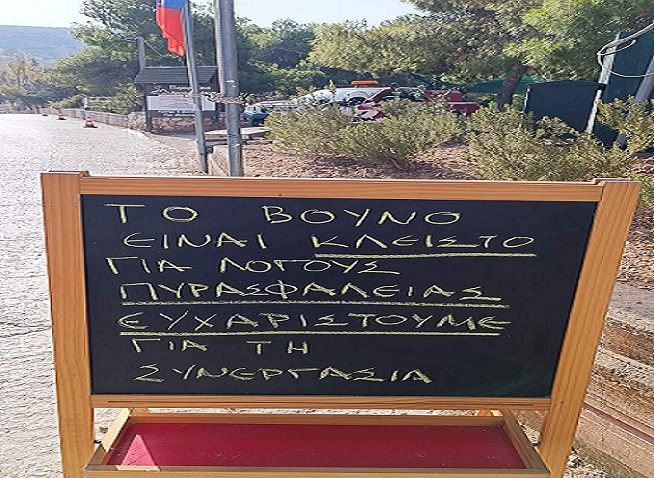 ΤΟ ΒΟΥΝΟ
ΕΙΝΑΙ ΚΛΕΙΣΤΟ
ΓΙΑ ΛΟΓΟΥΣ
ΠΥΡΑΣΦΑΛΕΙΑΣ
ΕΥΧΑΡΙΣΤΟΥΜΕ
ΓΙΑ ΤΗ
ΣΥΝΕΡΓΑΣΙΑ